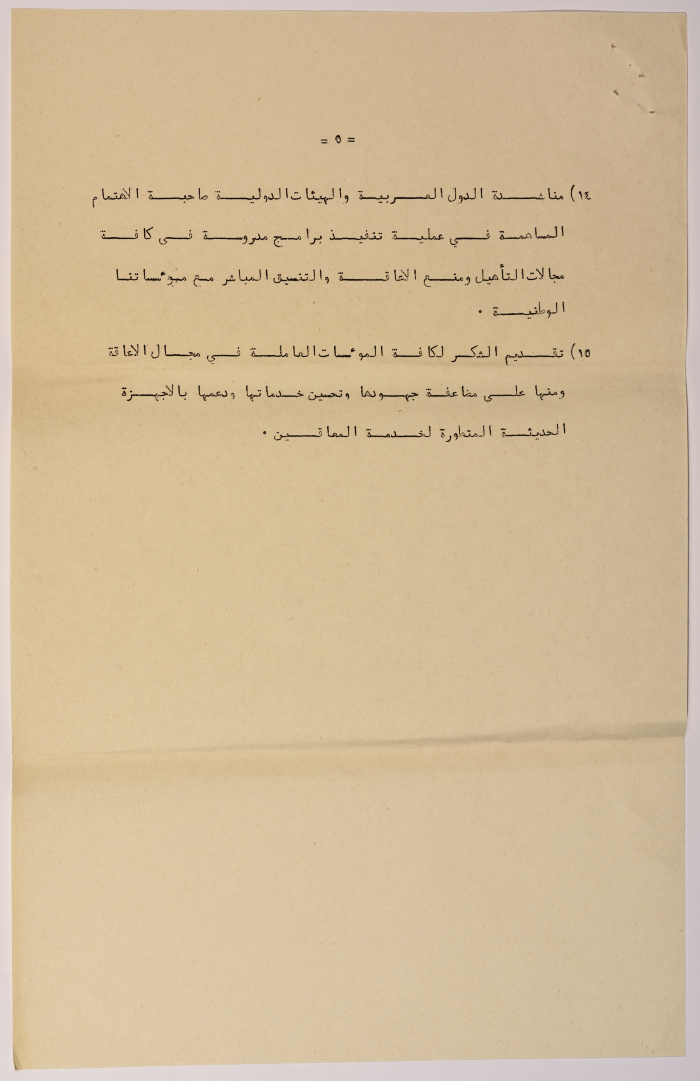 = ٥ =
١٤) مناشدة الدول العربية والهيئات الدولية صاحبة الاهتمام
المساهمة في عملية تنفيذ برامج مدروسة في كافة
مجالات التأهيل ومنع الاعاقة والتنسيق المباشر مع مؤسساتنا
الوطنية .
١٥) تقديم الشكر لكافة المؤسسات العاملة في مجال الاعاقة
ومنها على مضاعفة جهودها وتحسين خدماتها ودعمها بالاجهزة
الحديثة المتطورة لخدمة المعاقين .